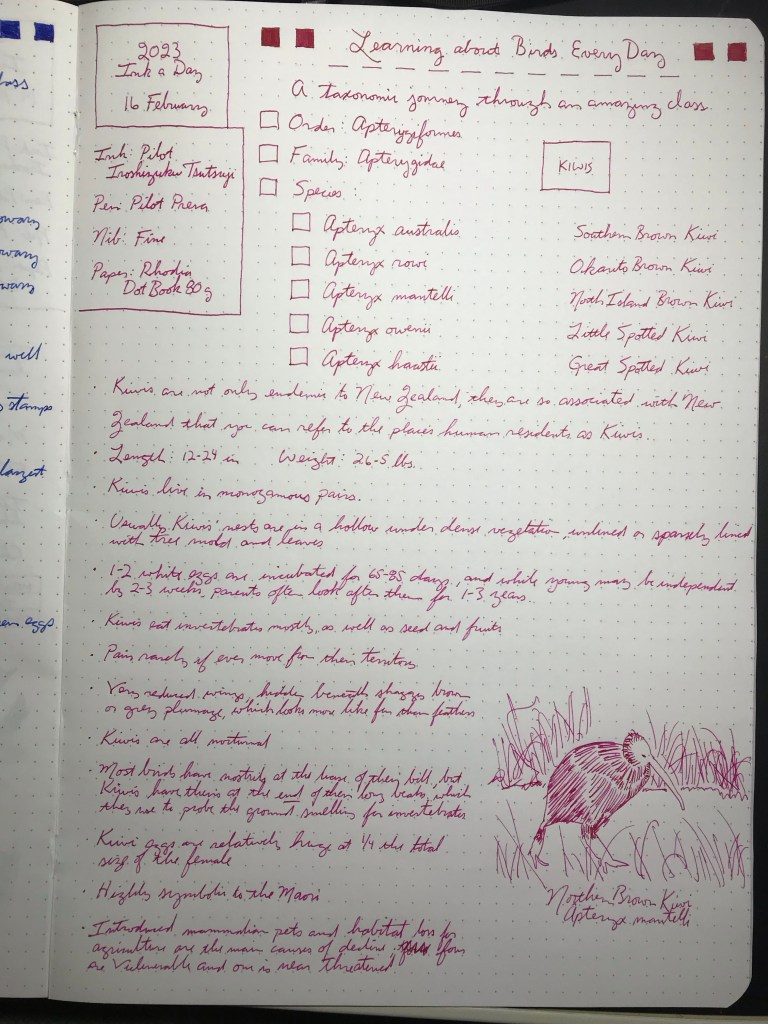 lass
owary
owary
wary
well
stamps
largest
eggs.
2023
Ink a Day
16 February
Ink: Pilot
Iroshizuku Tsutsuji
Pen: Pilot Prera
Nib: Fine
Paper: Rhodia
Dot Book 80g
Learning about Birds Every Day
A taxonomic journey through an amazing class
Order: Apterygiformes
Family: Apterygidae
KIWIS
Species:
Apteryx australis Southern Brown Kiwi
Apteryx rowi Okarito Brown Kiwi
Apteryx mantelli North Island Brown Kiwi
Apteryx owenii Little Spotted Kiwi
Apteryx haastii Great Spotted Kiwi
· Kiwis are not only endemic to New Zealand, they are so associated with New
Zealand that you can refer to the places human residents as Kiwis.
· Length: 12-24 in Weight: 2.6-5 lbs.
· Kiwis live in monogamous pairs.
· Usually Kiwis' nests are in a hollow under dense vegetation, unlined or sparsely lined
with tree mold and leaves
· 1-2 white eggs are incubated for 65-85 days, and while young may be independent
by 2-3 weeks, parents often look after them for 1-3 years.
· Kiwis eat invertebrates mostly, as well as seed and fruits
· Pairs rarely if ever move from their territory
· Very reduced wings, hidden beneath shaggy brown
or grey plumage, which looks more like fur than feathers
· Kiwis are all nocturnal
· Most birds have nostrils at the base of their bill, but
Kiwis have theirs at the end of their long beaks, which
they use to probe the ground smelling for invertebrates
· Kiwi eggs are relatively huge at 1/4 the total
size of the female
· Highly symbolic to the Maori
· Introduced mammalian pets and habitat loss for
agriculture are the main causes of decline; four
are Vulnerable and one is near threatened
Northern Brown Kiwi
Apteryx mantelli